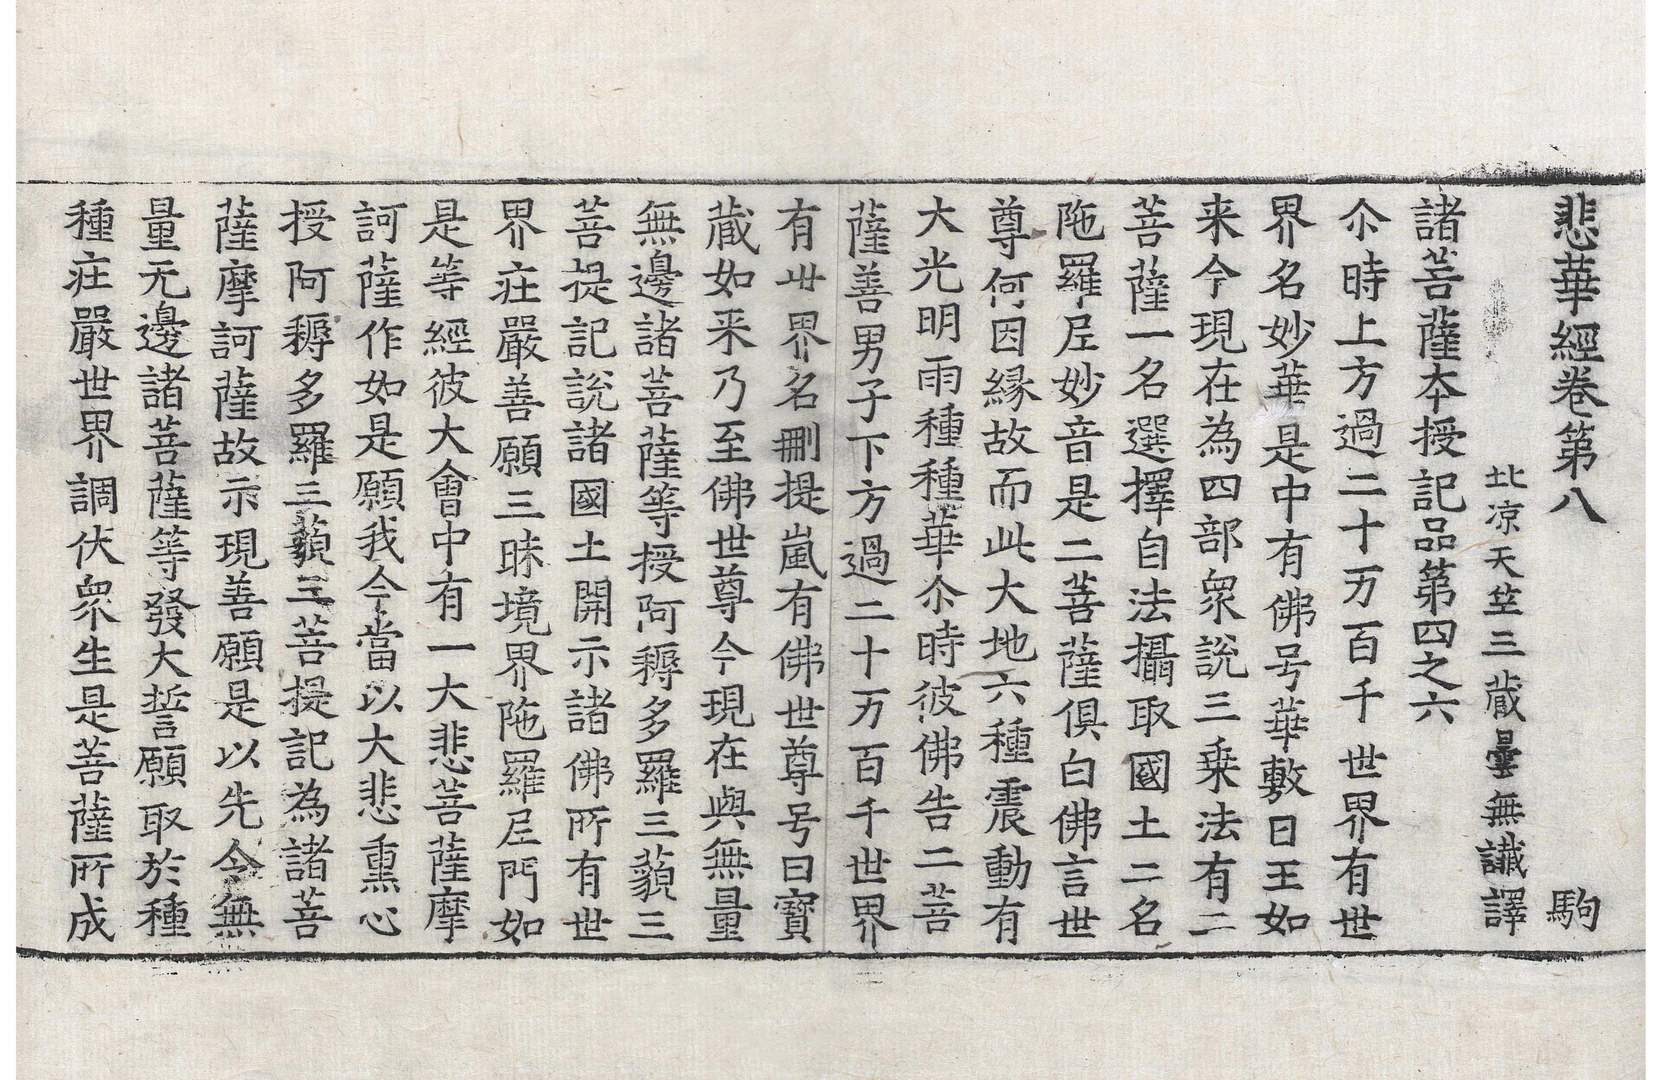 悲華經卷第八 駒
北凉天竺三藏曇無讖譯
諸菩薩本授記品第四之六
尒時上方過二十万百千世界有世
界名妙華是中有佛号華敷日王如
来今現在為四部衆說三乗法有二
菩薩一名選擇自法攝取國土二名
陁羅尼妙音是二菩薩俱白佛言世
尊何因縁故而此大地六種震動有
大光明雨種種華尒時彼佛告二菩
薩善男子下方過二十万百千世界
有世界名刪提嵐有佛世尊号曰寶
藏如来乃至佛世尊今現在與無量
無邊諸菩薩等授阿耨多羅三藐三
菩提記說諸國土開示諸佛所有世
界荘嚴善願三昧境界陁羅尼門如
是等經彼大會中有一大悲菩薩摩
訶薩作如是願我今當以大悲熏心
授阿耨多羅三藐三菩提記為諸菩
薩摩訶薩故示現善願是以先令無
量无邊諸菩薩等發大誓願取於種
種荘嚴世界調伏衆生是菩薩所成